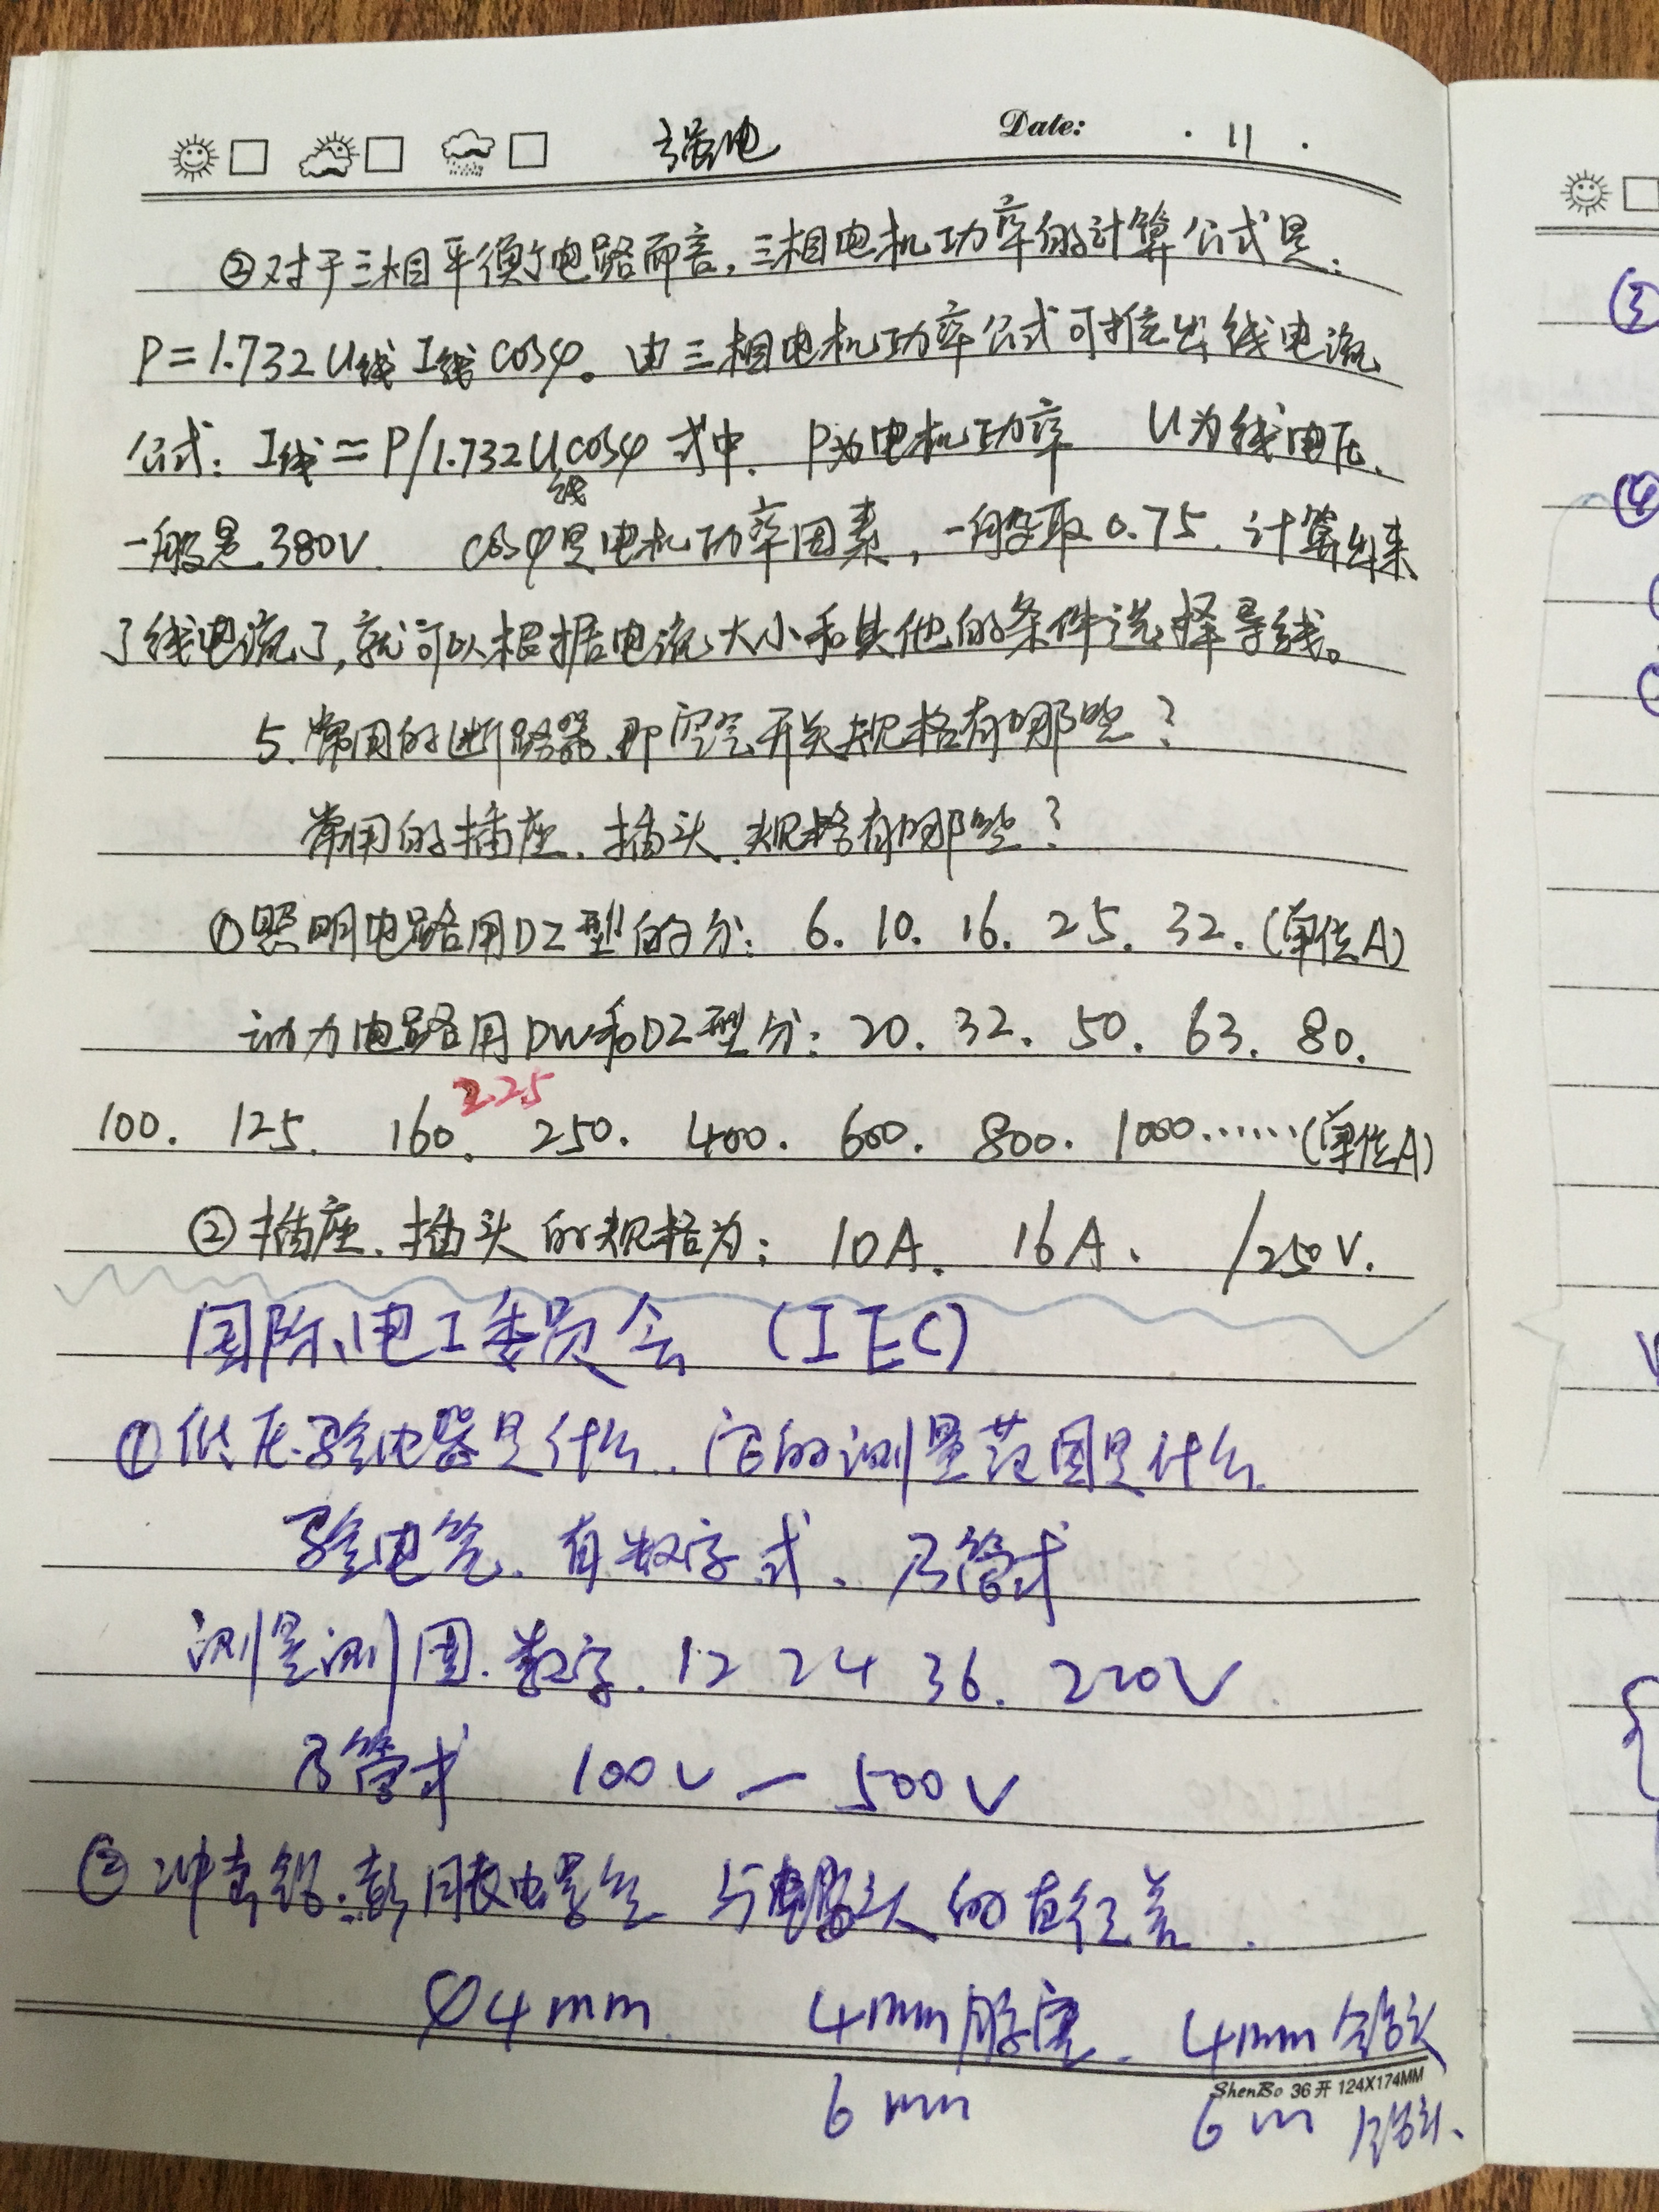 强电 Date: . 11 .
②对于三相平衡电路而言,三相电机功率的计算公式是:
P=1.732U线I线cosφ。由三相电机功率公式可推出线电流
公式:I线=P/1.732U线cosφ 式中. P为电机功率 U为线电压.
一般是.380V. cosφ是电机功率因素,一般取0.75.计算出来
了线电流了,就可以根据电流大小和其他的条件选择导线。
5.常用的断路器.即空气开关规格有哪些?
常用的插座.插头.规格有哪些?
①照明电路用DZ型的分: 6. 10. 16. 25. 32.(单位A)
动力电路用DW和DZ型分:20. 32. 50. 63. 80.
225
100. 125. 160. 250. 400. 600. 800. 1000......(单位A)
②插座.插头的规格为: 10A. 16A. /250V.
国际电工委员会 (IEC)
①低压验电器是什么.它的测量范围是什么.
验电笔.有数字式、乃管式
测量测围.数字.12 24 36. 220V
乃管式 100V-500V
②冲击钻. 与 头的直径差.
Ø4mm. 4mm胶塞. 4mm钻头
ShenBo 36开 124X174MM
6mm 6m 钻头.
③
④